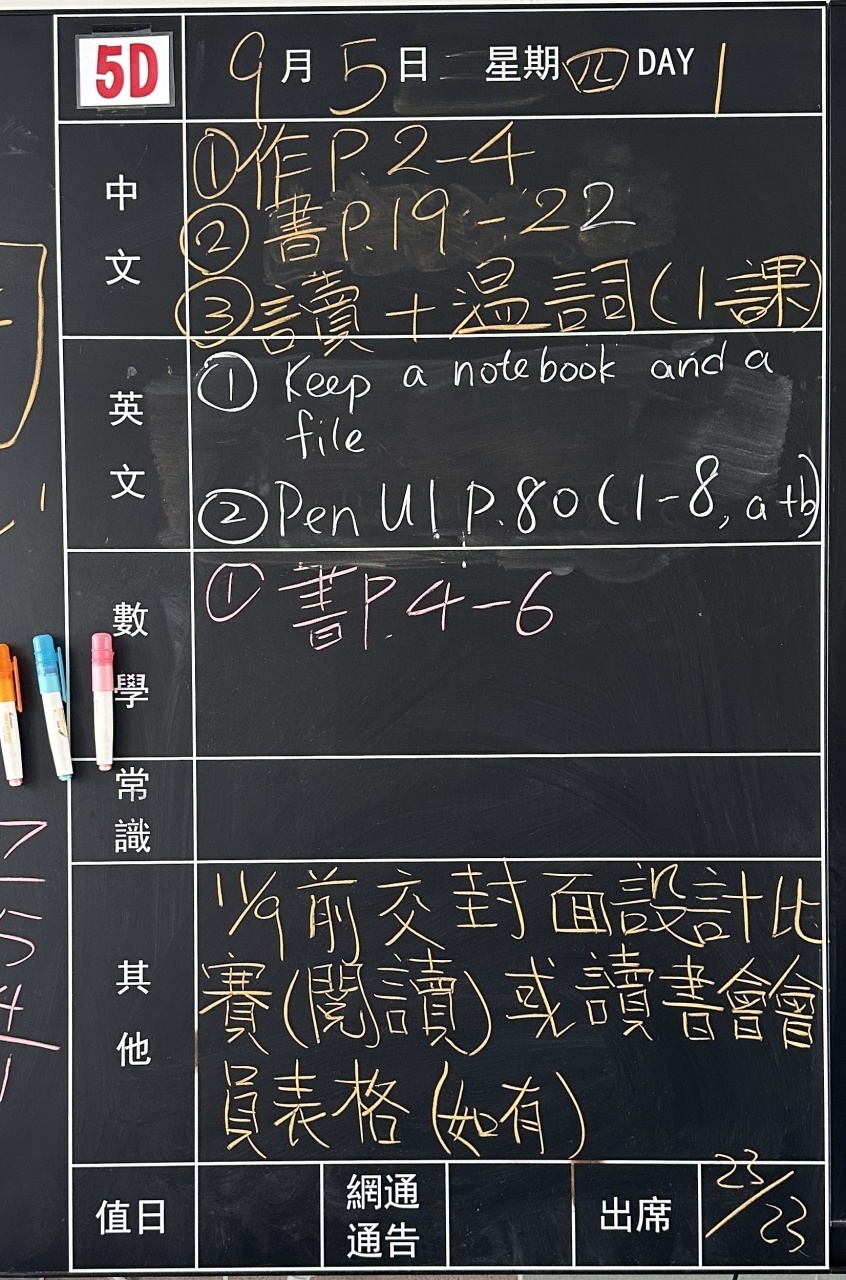 5D 9月5日 星期四 DAY 1
中文
①作P.2-4
②書P.19-22
③讀+温詞(1課)
英文
① Keep a notebook and a
file
②Pen U1 P.80(1-8, a+b)
數學
① 書P.4-6
常識
其他
11/9前交封面設計比
賽(閱讀)或讀書會會
員表格(如有)
值日
網通
通告
出席 23/23